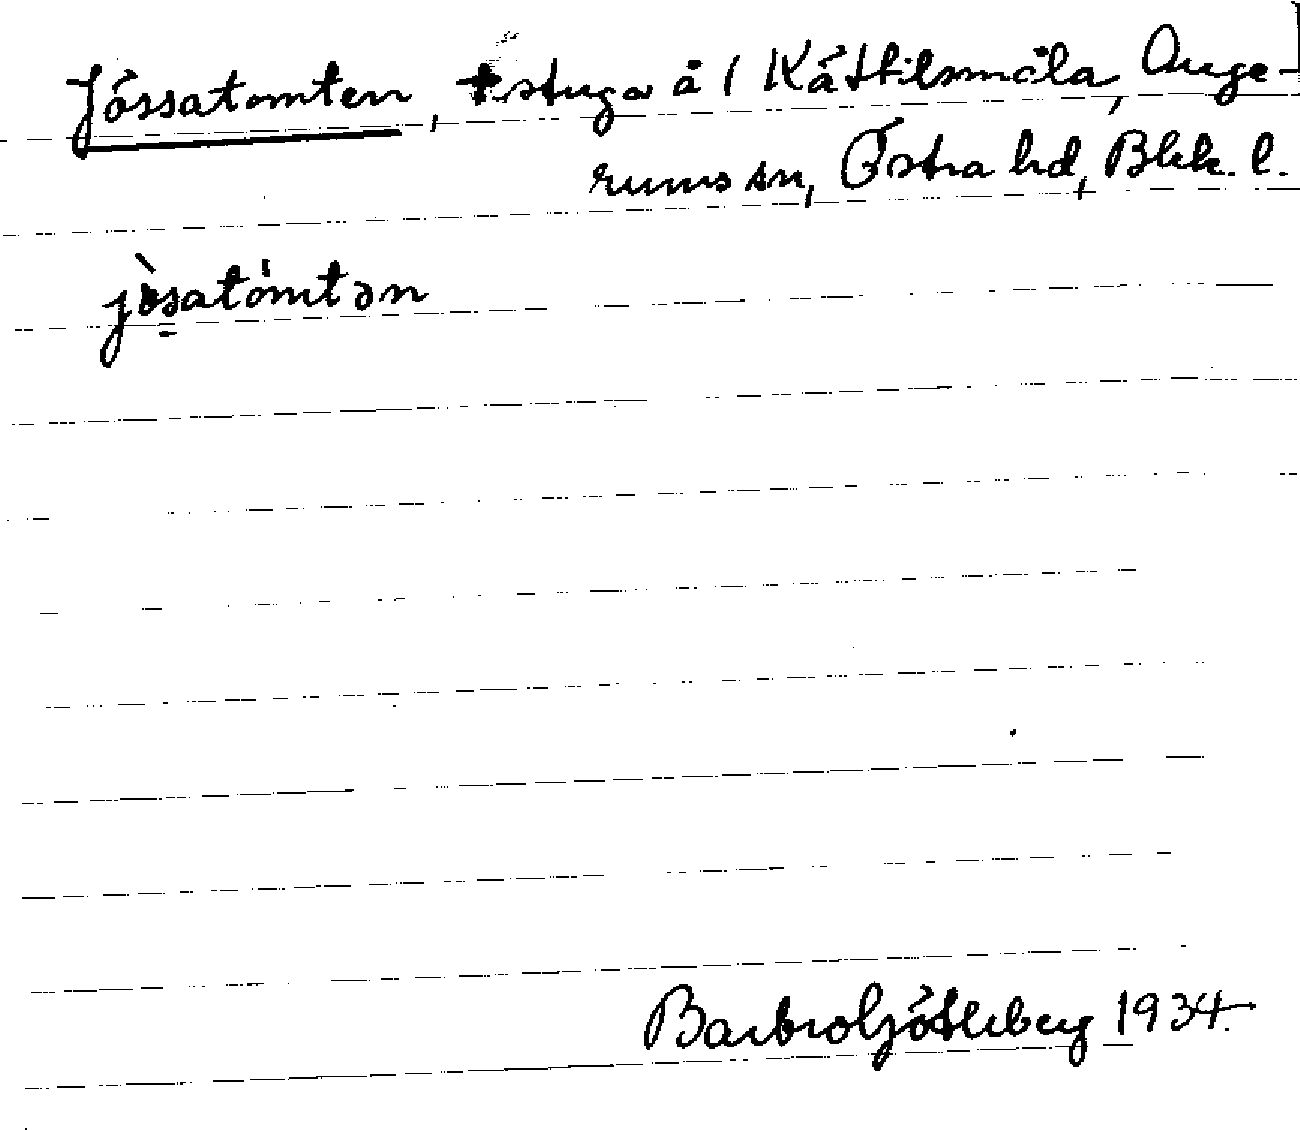 Jössatomten, † stuga å 1 Kättilsmåla, Auge-
rums sn, Östra hd, Blek. l.
jösatomtən
Barbro Götleberg 1934.